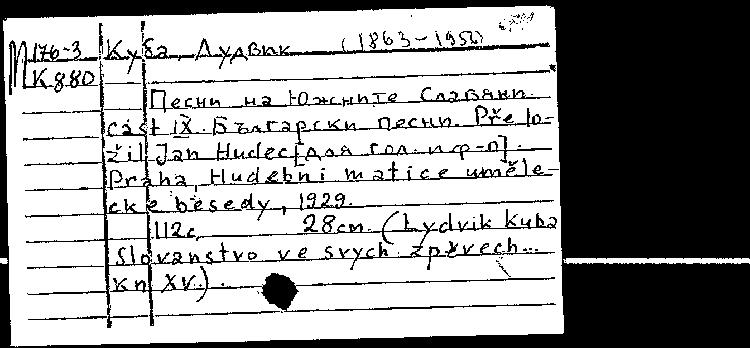 М176-3 Куба, Лудвик (1863-1956)
К880
Песни на Южните Славяни.
část IX. Български песни. Přelo-
žil Jan Hudec [для гол. и ф-п].
Praha, Hudebni matice uměle-
cke besedy, 1929.
112с, 28cm. (Lydvik Kuba
Slovanstvo ve svych zpěvech...
kn XV.)